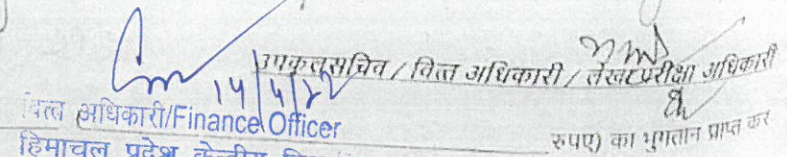 उपकुलसचिव / वित्त अधिकारी / लेखा परीक्षा अधिकारी
14/4/22
वित्त अधिकारी/Finance Officer
रुपए) का भुगतान प्राप्त कर
हिमाचल प्रदेश केन्द्रीय